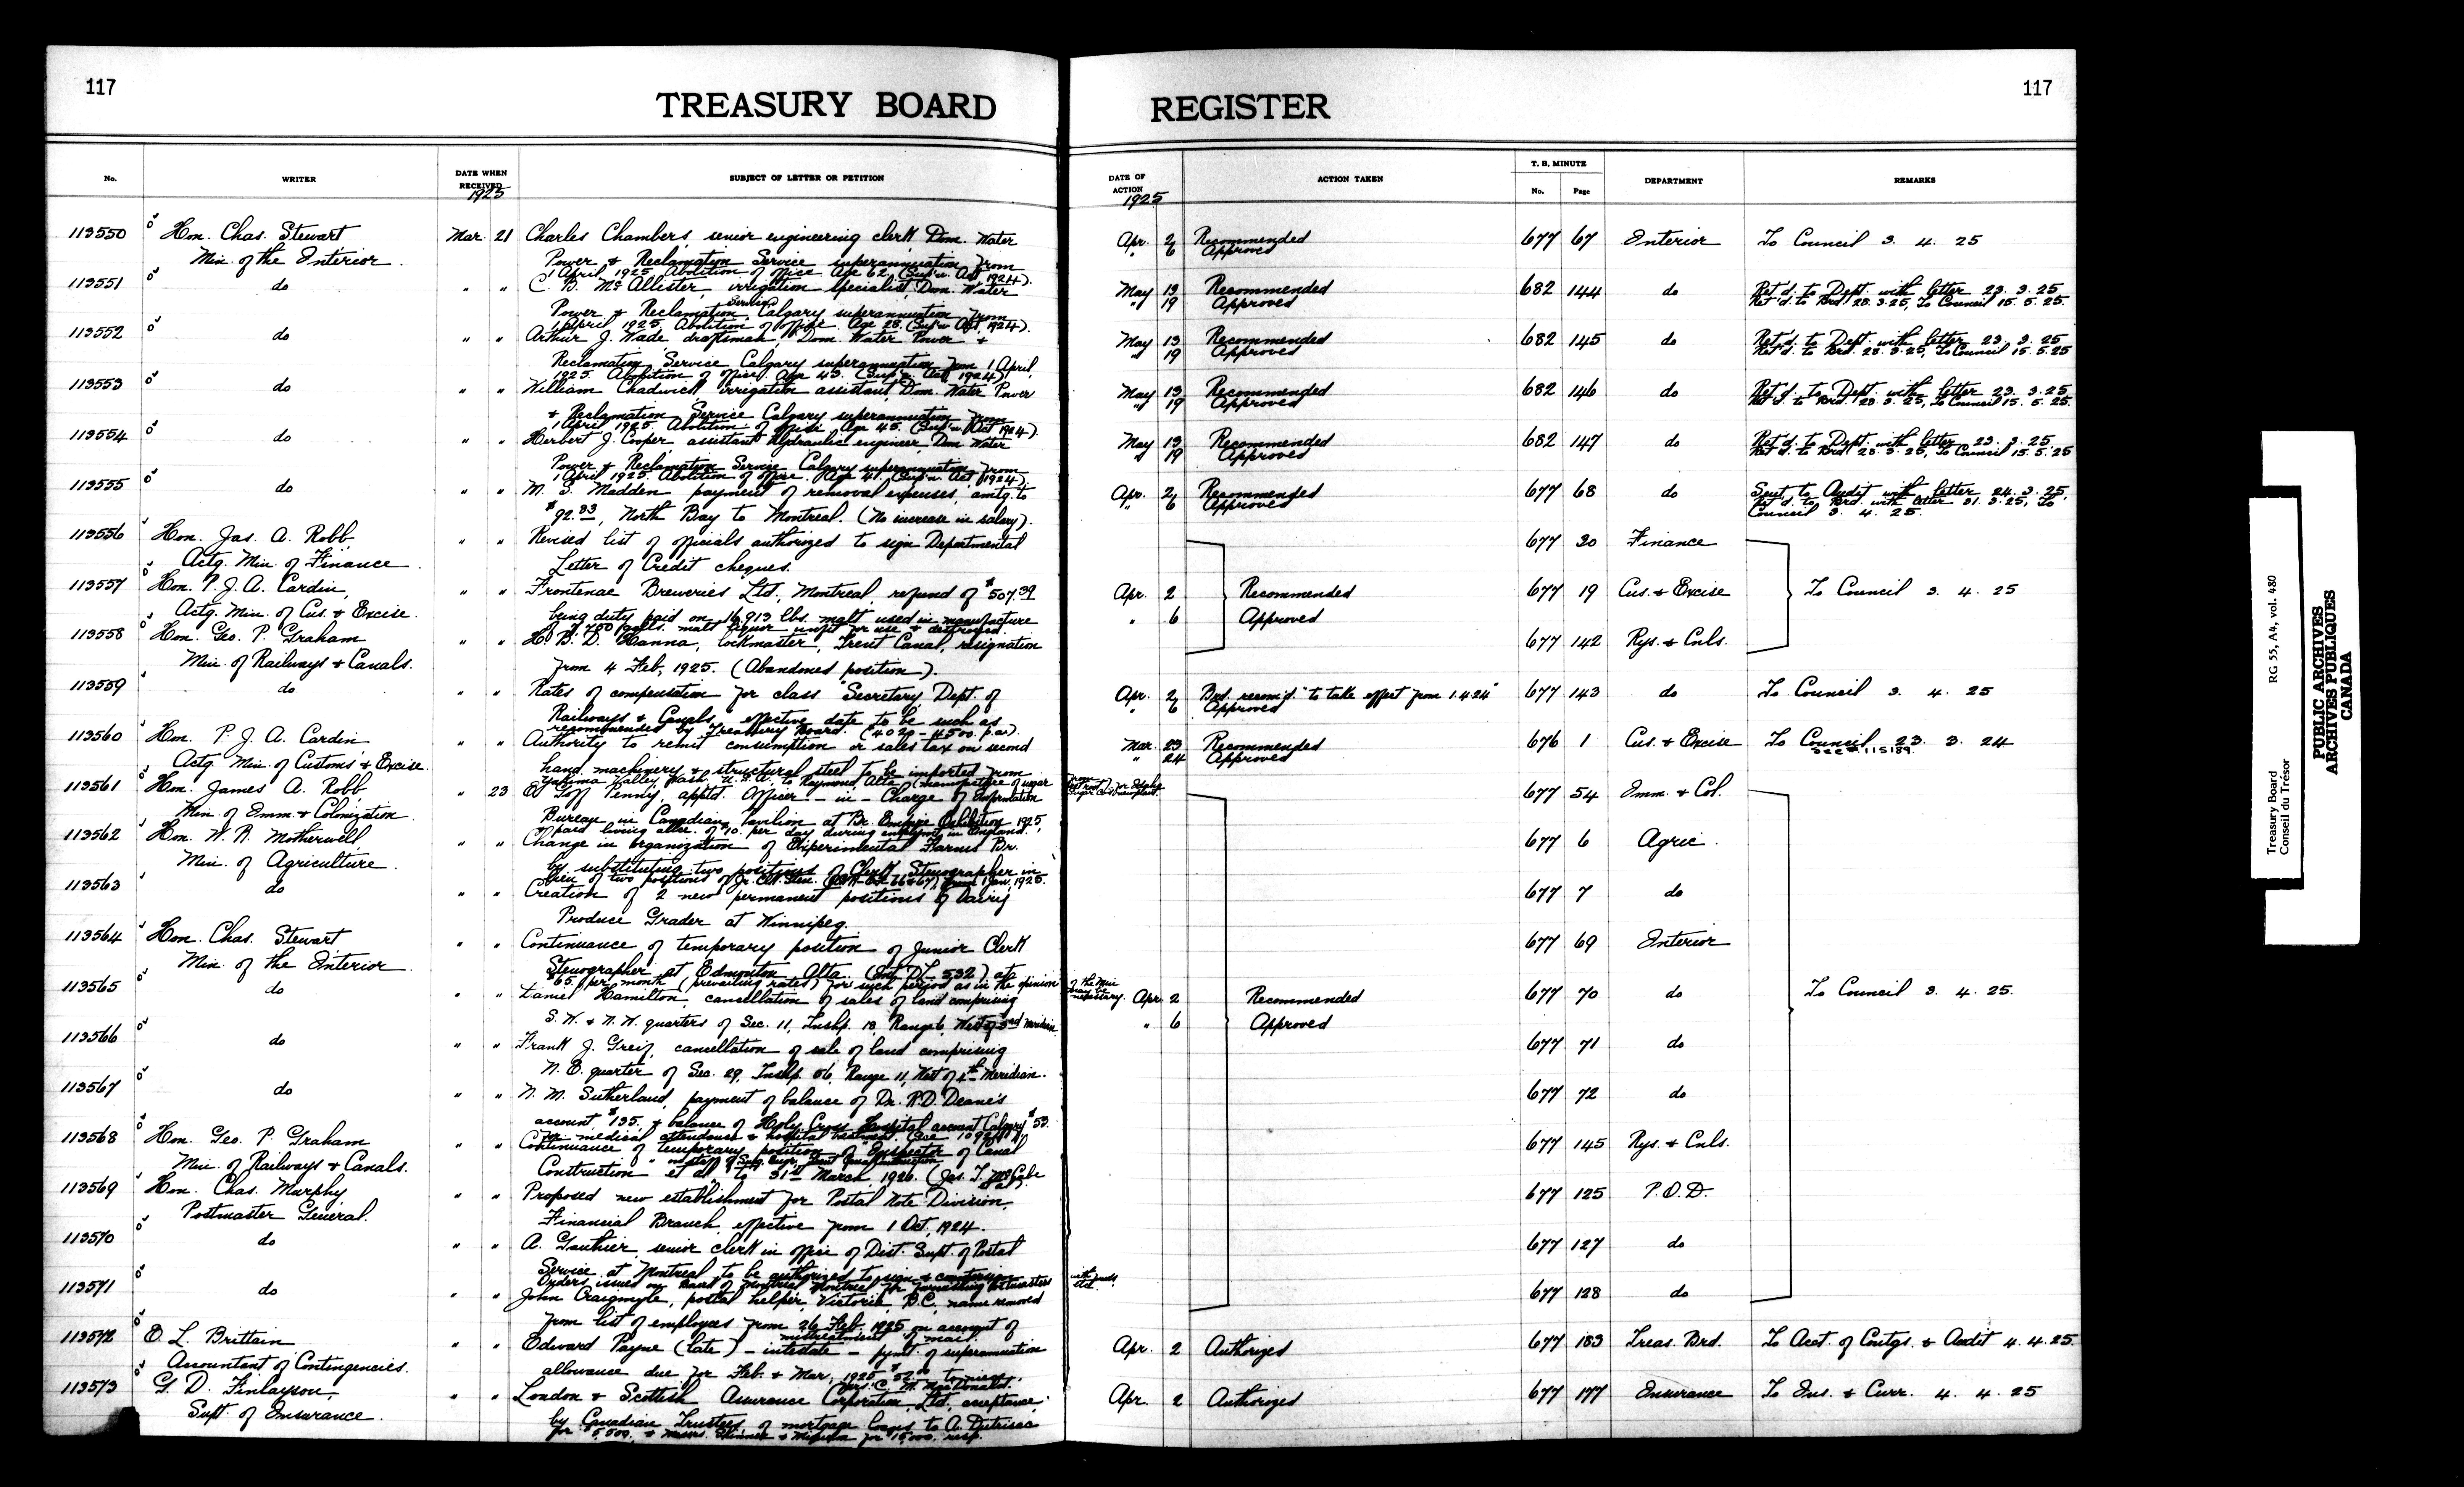 117
TREASURY BOARD REGISTER
117
No. WRITER DATE WHEN RECEIVED SUBJECT OF LETTER OR PETITION DATE OF ACTION ACTION TAKEN T. B. MINUTE No. Page DEPARTMENT REMARKS
1925 1925
113550 Hon. Chas. Stewart Mar. 21 Charles Chambers, senior engineering clerk, Dom. Water Apr. 2 Recommended 677 67 Interior To Council 3. 4. 25
Min. of the Interior Power & Reclamation Service superannuation from " 6 Approved
1 April 1925. Abolition of office Age 62. (Sup'n. Act 1924).
113551 do " " C. B. McAllister, irrigation specialist, Dom. Water May 13 Recommended 682 144 do Ret'd. to Dept. with letter 23. 3. 25
Power & Reclamation Service, Calgary superannuation from " 19 Approved Ret'd. to Brd. 28.3.25, To Council 15. 5. 25.
1 April 1925. Abolition of office. Age 28. (Sup'n Act, 1924).
113552 do " " Arthur J. Wade, draftsman, Dom. Water Power & May 13 Recommended 682 145 do Ret'd. to Dept. with letter 23. 3. 25
Reclamation Service Calgary superannuation from 1 April, " 19 Approved Ret'd. to Brd. 28.3.25, To Council 15. 5. 25
1925. Abolition of office. Age 43. (Sup'n. Act 1924)
113553 do " " William Chadwick irrigation assistant, Dom. Water Power May 13 Recommended 682 146 do Ret'd. to Dept. with letter 23. 3. 25
& Reclamation Service Calgary superannuation from " 19 Approved Ret'd. to Brd. 28. 3. 25, To Council 15. 5. 25.
1 April 1925. Abolition of office Age 45. (Sup'n. Act 1924).
113554 do " " Herbert J. Cooper assistant hydraulic engineer, Dom. Water May 13 Recommended 682 147 do Ret'd. to Dept. with letter 23. 3. 25
Power & Reclamation Service Calgary superannuation from " 19 Approved Ret'd. to Brd. 28. 3. 25, To Council 15. 5. 25
1 April 1925. Abolition of office. Age 41. (Sup'n. Act, 1924).
113555 do " " M. S. Madden payment of removal expenses, amtg. to Apr. 2 Recommended 677 68 do Sent to Audit with letter 24. 3. 25,
$92.33, North Bay to Montreal. (No increase in salary). " 6 Approved Ret'd. to Brd. with letter 31. 3. 25, To
Council 3. 4. 25.
113556 Hon. Jas. A. Robb " " Revised list of officials authorized to sign Departmental 677 30 Finance
Actg. Min. of Finance Letter of Credit cheques.
113557 Hon. P. J. A. Cardin, " " Frontenac Breweries Ltd., Montreal refund of $507.39 Apr. 2 Recommended 677 19 Cus. & Excise To Council 3. 4. 25
Actg. Min. of Cus. & Excise being duty paid on 16,913 lbs. malt used in manufacture " 6 Approved
malt liquor unfit for use & destroyed
113558 Hon. Geo. P. Graham " " H. B. D. Hanna, lockmaster, Trent Canal, resignation 677 142 Rys. & Cnls.
Min. of Railways & Canals. from 4 Feb, 1925. (Abandoned position).
113559 do " " Rates of compensation for class "Secretary, Dept. of Apr. 2 Brd. recom'd. "to take effect from 1.4.24" 677 143 do To Council 3. 4. 25
Railways & Canals", effective date to be such as " 6 Approved
recommended by Treasury Board. (4020 - 4500. p.a.).
113560 Hon. P. J. A. Cardin " " Authority to remit consumption or sales tax on second Mar. 23 Recommended 676 1 Cus. & Excise To Council 23. 3. 24
Actg. Min. of Customs & Excise. hand machinery & structural steel to be imported from " 24 Approved see # 115189
Yakima Valley Wash. U.S.A. to Raymond, Alta. (manufacture of sugar
113561 Hon. James A. Robb " 23 Goff Penny, apptd. Officer - in - Charge of Information 677 54 Imm. & Col.
Min. of Imm. & Colonization Bureau in Canadian Pavilion at Br. Empire Exhibition 1925,
paid living allce. of $10. per day during employmt in England.
113562 Hon. W. R. Motherwell " " Change in organization of Experimental Farms Br. 677 6 Agric.
Min. of Agriculture by substituting two positions of Clerk Stenographer in
lieu of two positions of Jr. Clk. Sten. 1 Jan, 1925.
113563 do " " Creation of 2 new permanent positions of Dairy 677 7 do
Produce Grader at Winnipeg.
113564 Hon. Chas. Stewart " " Continuance of temporary position of Junior Clerk 677 69 Interior
Min. of the Interior Stenographer at Edmonton Alta. (Int. DL-532) at
$65. per month (prevailing rates) for such period as in the opinion of the Min may be necessary.
113565 do " " Daniel Hamilton, cancellation of sales of land comprising Apr. 2 Recommended 677 70 do To Council 3. 4. 25.
S. W. & N. W. quarters of Sec. 11, Tnshp. 18, Range 6, West of 3rd Meridian " 6 Approved
113566 do " " Frank J. Greig, cancellation of sale of land comprising 677 71 do
N. E. quarter of Sec. 29, Tnshp. 56, Range 11, West of 4th Meridian.
113567 do " " N. M. Sutherland, payment of balance of Dr. R.D. Deane's 677 72 do
account $135. & balance of Holy Cross Hospital account Calgary $53.
medical attendance & hospital treatment.
113568 Hon. Geo. P. Graham " " Continuance of temporary position of "Inspector of Canal 677 145 Rys. & Cnls.
Min. of Railways & Canals. Construction" et al, to 31st March, 1926. (Jas. T. McCabe et al).
113569 Hon. Chas. Murphy " " Proposed new establishment for Postal Note Division, 677 125 P.O.D.
Postmaster General. Financial Branch, effective from 1 Oct, 1924.
113570 do " " A. Gauthier, senior clerk in office of Dist. Supt. of Postal 677 127 do
Service at Montreal to be authorized to sign & countersign
Orders issued on Bank of Montreal Montreal for furnishing Postmasters
113571 do " " John Craigmyle, postal helper, Victoria, B.C. name removed 677 128 do
from list of employees from 26 Feb. 1925 on account of
mistreatment of mail.
113572 E. L. Brittain " " Edward Payne (late) - intestate - pymt. of superannuation Apr. 2 Authorized 677 183 Treas. Brd. To Acct. of Contgs. & Audit 4. 4. 25.
Accountant of Contingencies. allowance due for Feb. & Mar, 1925
Mrs. C. M. MacDonald.
113573 G. D. Finlayson, " " London & Scottish Assurance Corporation Ltd, acceptance Apr. 2 Authorized 677 177 Insurance To Ins. & Curr. 4. 4. 25
Supt. of Insurance. by Canadian Trustees of mortgage loans to A. Dutrisac
Treasury Board
Conseil du Trésor
RG 55, A4, vol. 480
PUBLIC ARCHIVES
ARCHIVES PUBLIQUES
CANADA